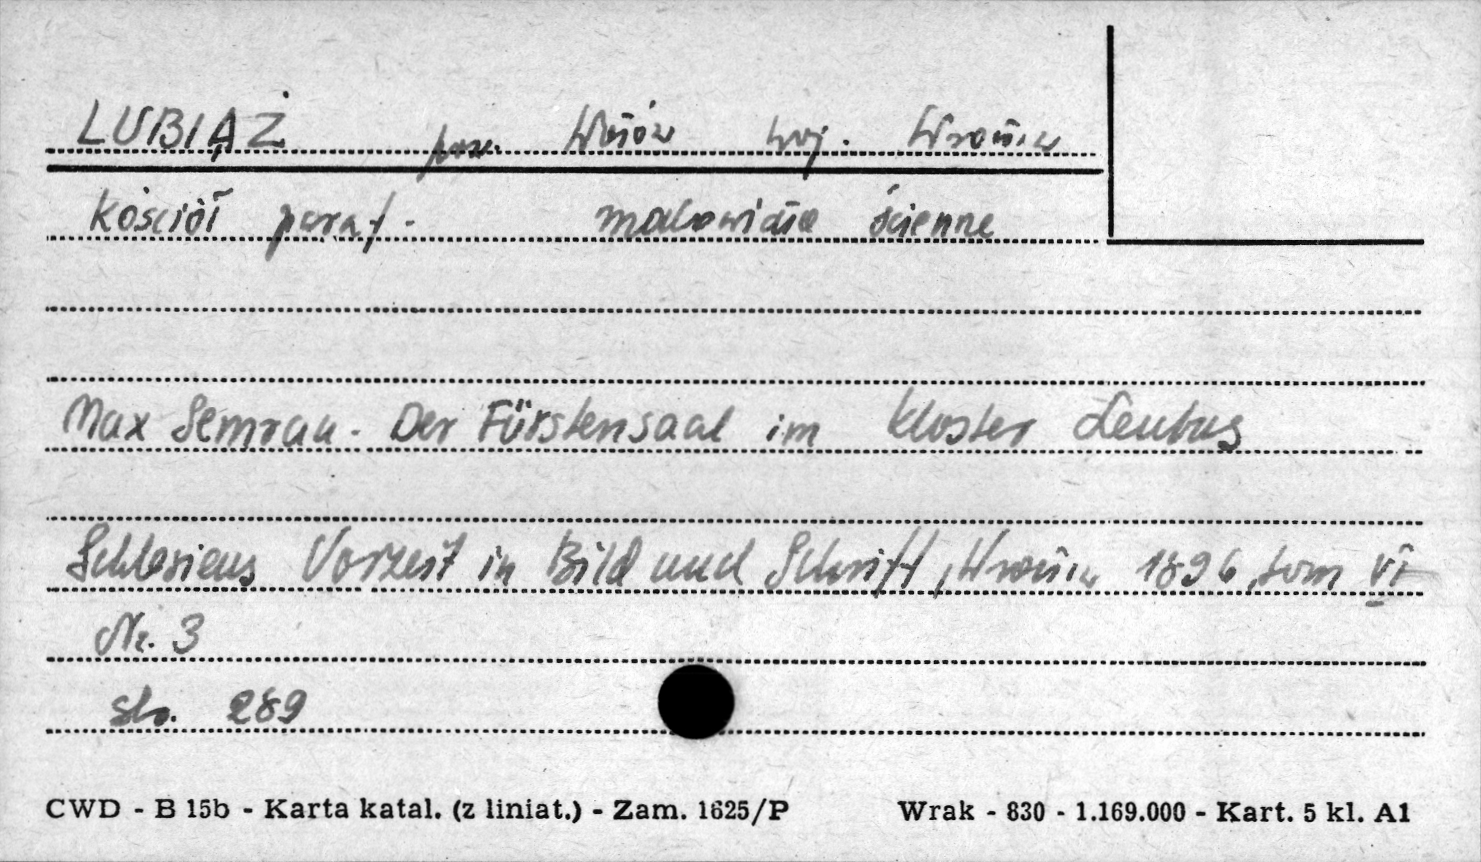 LUBIĄŻ pow. Wołów woj. Wrocław
Kościół paraf. malowidła ścienne
Max Semrau. Der Fürstensaal im Kloster Leubus
Schlesiens Vorzeit in Bild und Schrift, Wrocław 1896, tom VI
Nr. 3
str. 289
CWD - B 15b - Karta katal. (z liniat.) - Zam. 1625/P Wrak - 830 - 1.169.000 - Kart. 5 kl. A1